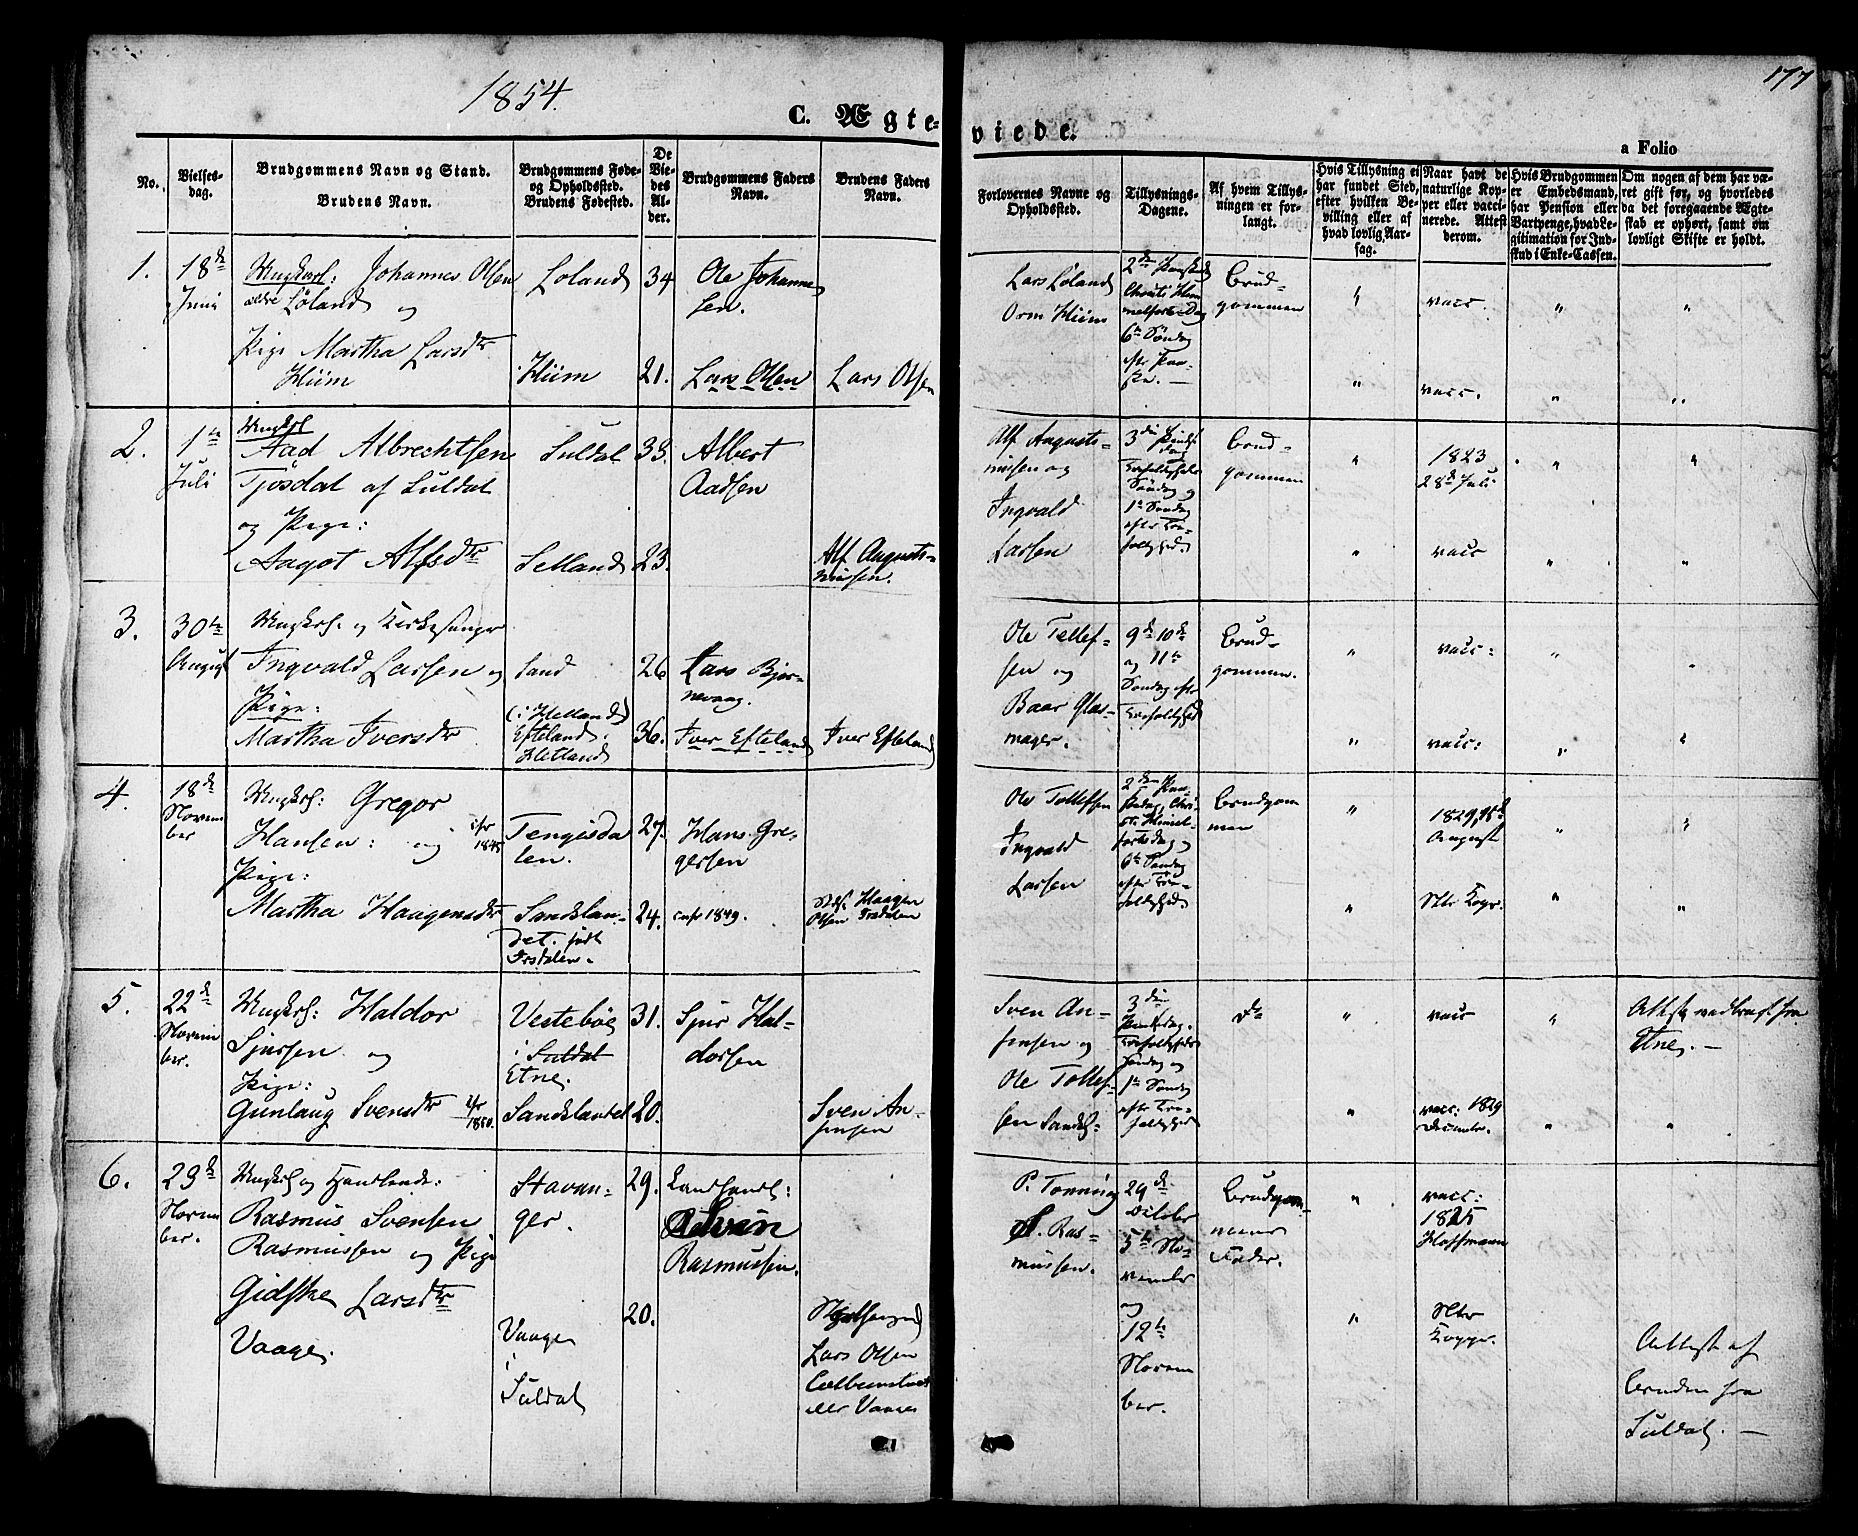 1854.
177
C. Ægte-
viede.
a Folio
No.
Vielses-
dag.
Brudgommens Navn og Stand.
Brudens Navn.
Brudgommens Føde-
og Opholdssted.
Brudens Fødested.
De
Vie-
des
Al-
der.
Brudgommens Faders
Navn.
Brudens Faders
Navn.
Forlovernes Navne og
Opholdssted.
Tillysnings-
Dagene.
Af hvem Tillys-
ningen er for-
langt.
Hvis Tillysning ei
har fundet Sted,
efter hvilken Be-
villing eller af
hvad lovlig Aar-
sag.
Naar havt de
naturlige Kop-
per eller vacci-
nerede. Attest
derom.
Hvis Brudgommen
er Embedsmand,
har Pension eller
Vartpenge, hvad Le-
gitimation for Ind-
skud i Enke-Cassen.
Om nogen af dem har væ-
ret gift før, og hvorledes
da det foregaaende Ægte-
skab er ophørt, samt om
lovligt Skifte er holdt.
1.
18de
Juni
Ungkarl: Johannes Olsen
Løland og
Pige Martha Larsdtr
Hiim
Løland
Hiim
34
21.
Ole Johanne
sen.
Lars Olsen
Lars Olsen
Lars Løland
Orm Hiim
2den
Christi Him
melfartsDag
6te Søndag
eftr Paa-
ske. —
Brud-
gommen
vacc.
vacc.
2.
1te
Juli
Ungkrl
Aad Albrechtsen
Tjøsdal af Suldal
og Pige:
Aagot Alfsdtr
Suldal
Selland
33.
23.
Albert
Aadsen
Alf Augusti-
nussen.
Alf Augusti-
nussen og
Ingvald
Larsen
3die Pindse
dag
Trefoldigheds
Søndag og
1te Søndag
efter Tre-
foldighed
Brud-
gommen
1823
28de Juli
vacc
3.
30te
August
Ungkrl. og Kirkesanger
Ingvald Larsen og
Pige:
Martha Iversdtr
Sand
(i Helland)
Efteland.
Hetland
26
36.
Lars Bjor-
nevaag.
Iver Efteland
Iver Efteland
Ole Tollef-
sen og
Baar Glas-
mager.
9de 10de
og 11te
Søndag eftr
Trefoldighed
Brud-
gommen.
vacc:
vacc:
4.
18de
Novem
ber
Ungkrl: Gregor
Hansen: og
1845
Pige:
Martha Haagensdtr
Tengisda
len.
Sandslan-
det. født
Irsdalen.
27.
24.
Hans Gre-
gersen
conf 1849.
Haagen
Olsen Irsdalen
Ole Tollefsen
Ingvald
Larsen
2den
Himmel-
fartsdag og
6te Søndag
efter Tre-
foldighed
Brudgom
men
1829,
August
Ntr Kopr.
5.
22de
Novem
ber.
Ungkrl: Haldor
Sjursen og
Pige:
Gunlaug Svensdtr
1850.
Vestebøe
i Suldal
Etne.
Sandslandet
31.
20.
Sjur Hal-
dorsen
Sven An-
fensen
Sven An-
fensen og
Ole Tollef-
sen Sandsl-
3die
Pindsedag.
Trefoldigheds
Søndag og
1te Søndag
efter Tre-
foldighed
Do
vacc
vacc: 1839
December.
Attest medbragt fra
Etne. —
6.
29de
Novem
ber.
Ungkrl og Handlende:
Rasmus Svensen
Rasmussen og Pige
Gidske Larsdtr
Vaage.
Stavan-
ger.
Vaage
i
Suldal
29.
20.
Landhandl:
Sven
Rasmussen.
Lars Olsen
eller Vaage
P. Tonning
Ras-
mussen.
29de
Octobr
5te No-
vember
og
12te
Novem
ber.
Brudgom-
mens
Fader.
vacc:
1825
Hoffmann
Ntr
Kopper.
Attest af
Bruden fra
Suldal. —